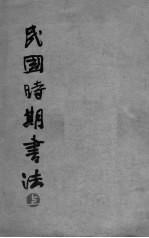 民國時期書法上